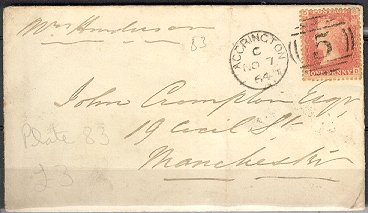 Mr Henderson
83
ACCRINGTON
C
NO 7
64
5
ONE PENNY
John Crompton Esqr
19 Cecil St
Manchester
Plate 83
£3